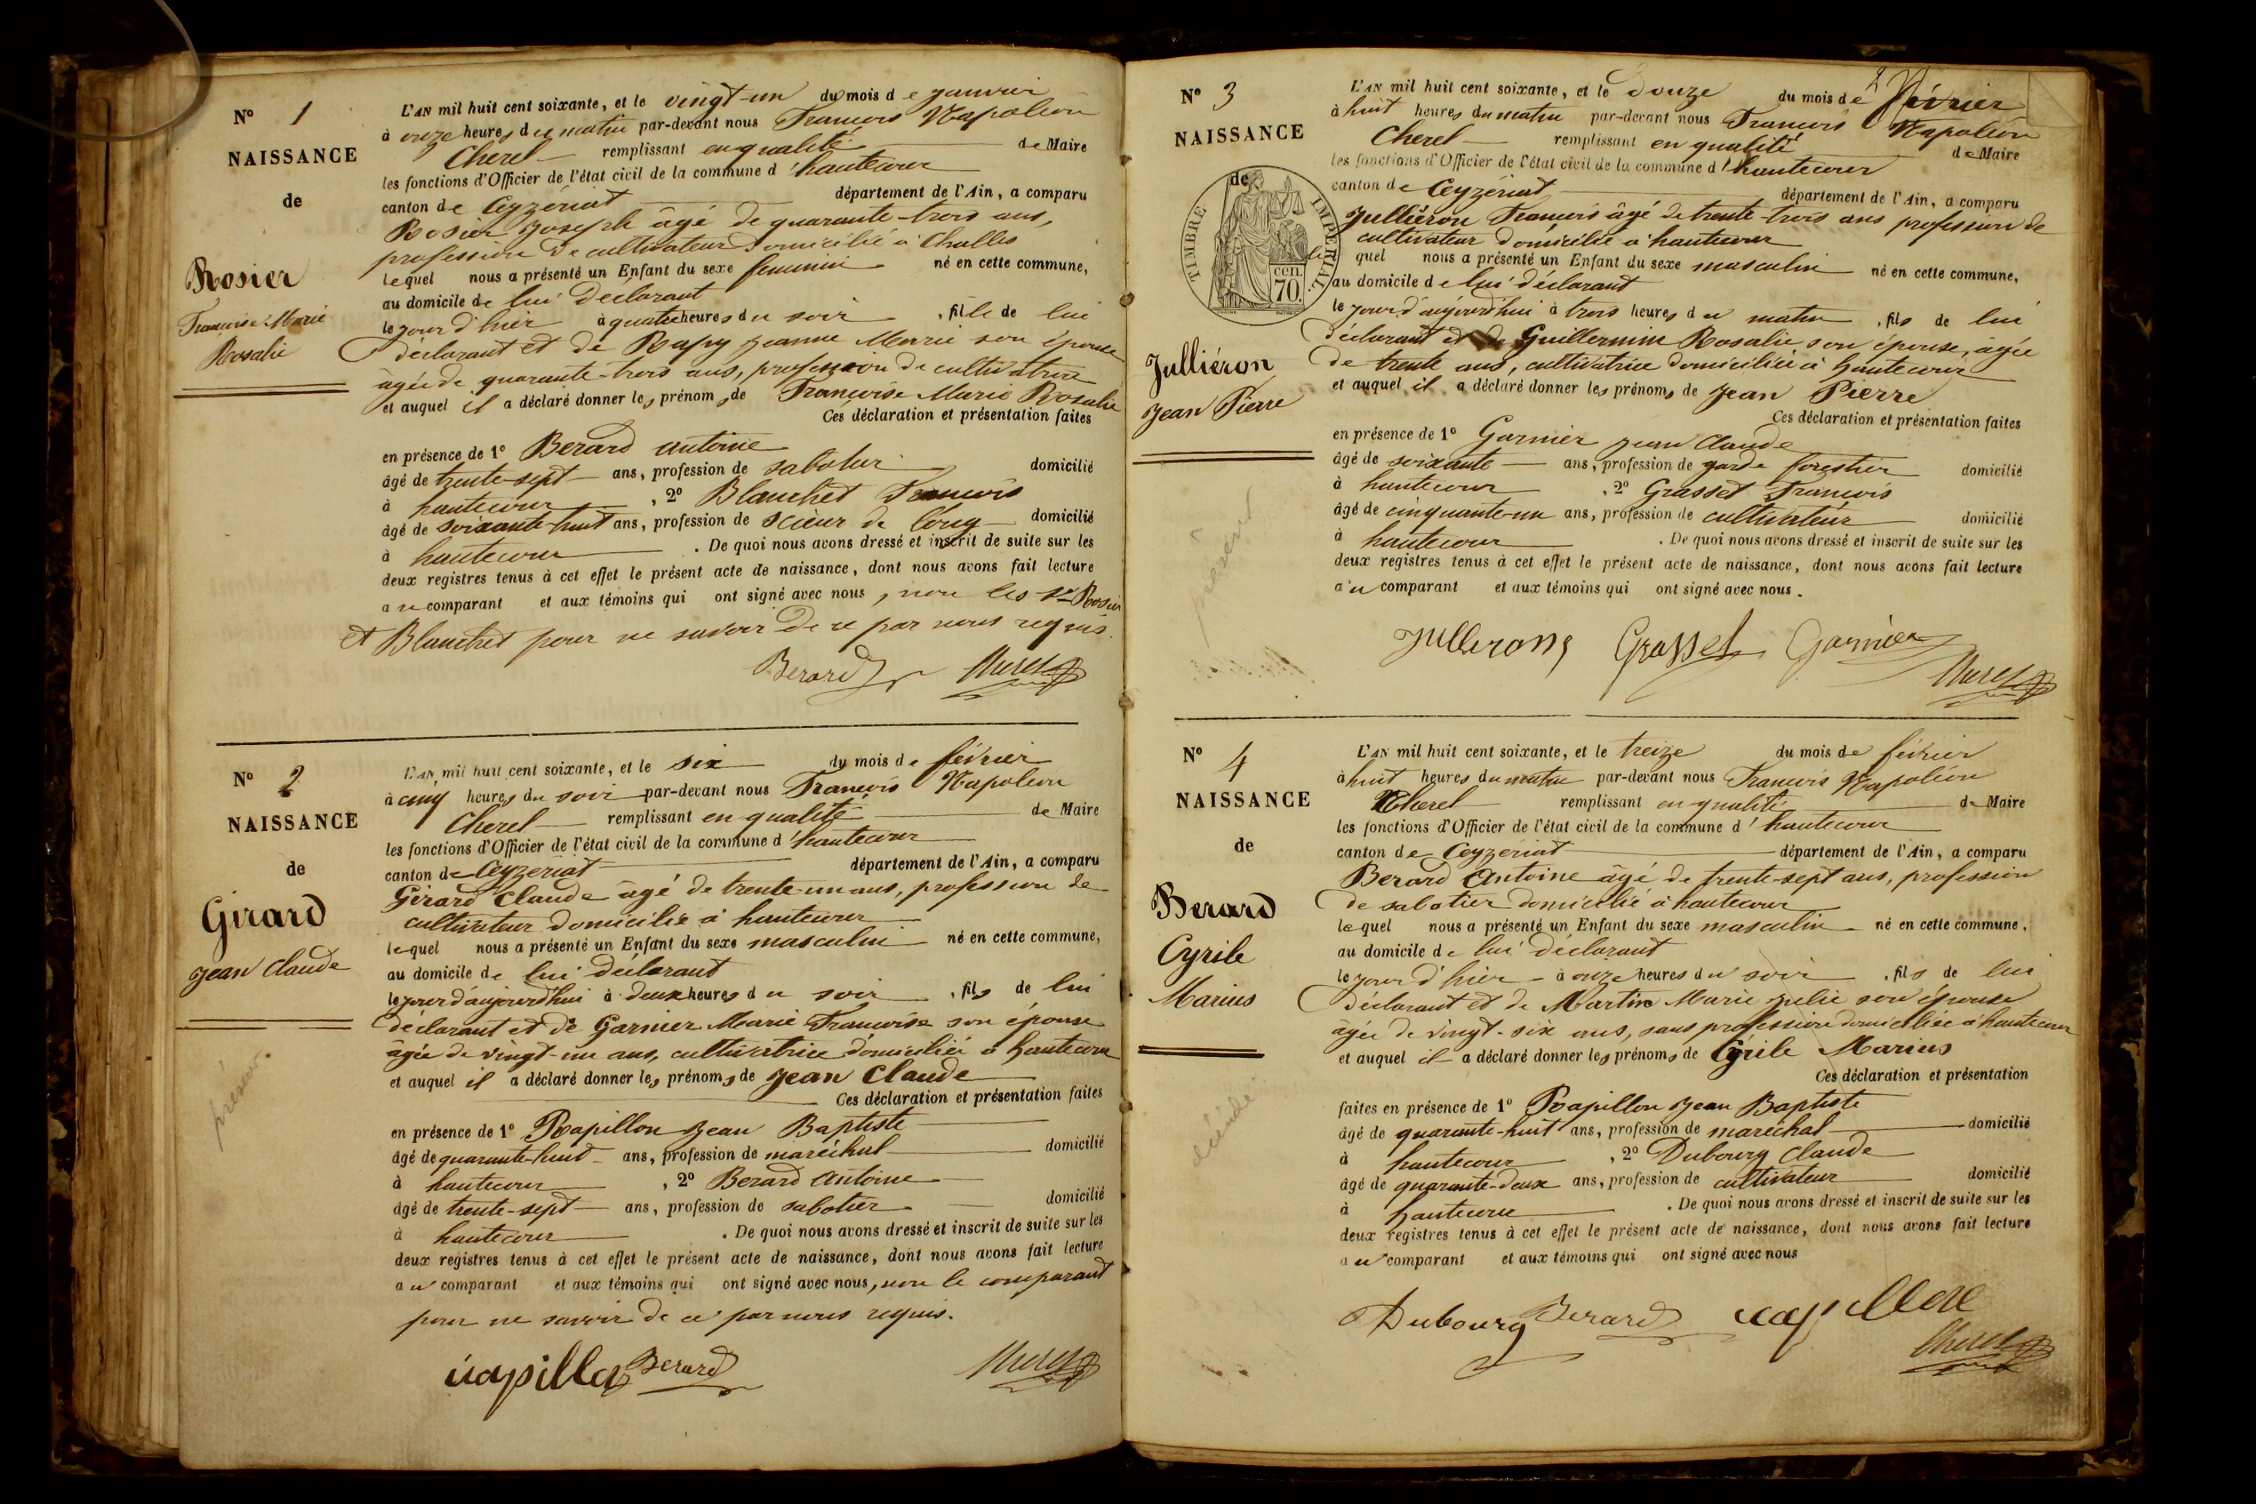 N° 1
NAISSANCE
de
Rosier
Francoise Marie
Rosalie
L'AN mil huit cent soixante, et le vingt-un du mois de janvier
à onze heures du matin par-devant nous Francois Napoléon
Cherel remplissant en qualité de Maire
les fonctions d'Officier de l'état civil de la commune d'hautecour
canton de Ceyzériat département de l'Ain, a comparu
Rosier Joseph âgé de quarante-trois ans,
profession de cultivateur domicilié à Challes
lequel nous a présenté un Enfant du sexe feminin né en cette commune,
au domicile de lui déclarant
le jour d'hier à quatre heures du soir, fille de lui
déclarant et de Rapy Jeanne Marie son épouse
âgée de quarante-trois ans, profession de cultivatrice
et auquel il a déclaré donner les prénoms de Francoise Marie Rosalie
Ces déclaration et présentation faites
en présence de 1° Berard antoine
âgé de trente-sept ans, profession de sabotier domicilié
à hautecour, 2° Blanchet Francois
âgé de soixante-huit ans, profession de scieur de long domicilié
à hautecour. De quoi nous avons dressé et inscrit de suite sur les
deux registres tenus à cet effet le présent acte de naissance, dont nous avons fait lecture
au comparant et aux témoins qui ont signé avec nous, non les Srs Rosier
et Blanchet pour ne savoir de ce par nous requis.
Berard Cherel
N° 2
NAISSANCE
de
Girard
Jean Claude
présent
L'AN mil huit cent soixante, et le six du mois de février
à cinq heures du soir par-devant nous Francois Napoléon
Cherel remplissant en qualité de Maire
les fonctions d'Officier de l'état civil de la commune d'hautecour
canton de Ceyzériat département de l'Ain, a comparu
Girard Claude âgé de trente-un ans, profession de
cultivateur domicilié à hautecour
lequel nous a présenté un Enfant du sexe masculin né en cette commune,
au domicile de lui déclarant
le jour d'aujourd'hui à deux heures du soir, fils de lui
déclarant et de Garnier Marie Francoise son épouse
âgée de vingt-un ans, cultivatrice domiciliée à hautecour
et auquel il a déclaré donner les prénoms de Jean Claude
Ces déclaration et présentation faites
en présence de 1° Rapillon Jean Baptiste
âgé de quarante-huit ans, profession de maréchal domicilié
à hautecour, 2° Berard Antoine
âgé de trente-sept ans, profession de sabotier domicilié
à hautecour. De quoi nous avons dressé et inscrit de suite sur les
deux registres tenus à cet effet le présent acte de naissance, dont nous avons fait lecture
au comparant et aux témoins qui ont signé avec nous, non le comparant
pour ne savoir de ce par nous requis.
Berard Cherel
N° 3
NAISSANCE
de
TIMBRE IMPERIAL
70 cen.
Julliéron
Jean Pierre
présent
L'AN mil huit cent soixante, et le Douze du mois de février
à huit heures du matin par-devant nous Francois Napoléon
Cherel remplissant en qualité de Maire
les fonctions d'Officier de l'état civil de la commune d'hautecour
canton de Ceyzériat département de l'Ain, a comparu
Julliéron Francois âgé de trente-trois ans profession de
cultivateur domicilié à hautecour
le quel nous a présenté un Enfant du sexe masculin né en cette commune,
au domicile de lui déclarant
le jour d'aujourd'hui à trois heures du matin, fils de lui
déclarant et de Guillermin Rosalie son épouse, âgée
de trente ans, cultivatrice domiciliée à hautecour
et auquel il a déclaré donner les prénoms de Jean Pierre
Ces déclaration et présentation faites
en présence de 1° Garnier Jean Claude
âgé de soixante ans, profession de garde forestier domicilié
à hautecour, 2° Grasset Francois
âgé de cinquante-un ans, profession de cultivateur domicilié
à hautecour. De quoi nous avons dressé et inscrit de suite sur les
deux registres tenus à cet effet le présent acte de naissance, dont nous avons fait lecture
au comparant et aux témoins qui ont signé avec nous.
Grasset Garnier
Cherel
N° 4
NAISSANCE
de
Berard
Cyrile
Marius
décédé
L'AN mil huit cent soixante, et le treize du mois de février
à huit heures du matin par-devant nous Francois Napoléon
Cherel remplissant en qualité de Maire
les fonctions d'Officier de l'état civil de la commune d'hautecour
canton de Ceyzériat département de l'Ain, a comparu
Berard Antoine âgé de trente-sept ans, profession
de sabotier domicilié à hautecour
lequel nous a présenté un Enfant du sexe masculin né en cette commune,
au domicile de lui déclarant
le jour d'hier à onze heures du soir, fils de lui
déclarant et de Martin Marie Julie son épouse
âgée de vingt-six ans, sans profession domiciliée à hautecour
et auquel il a déclaré donner les prénoms de Cyrile Marius
Ces déclaration et présentation
faites en présence de 1° Rapillon Jean Baptiste
âgé de quarante-huit ans, profession de maréchal domicilié
à hautecour, 2° Dubourg Claude
âgé de quarante-deux ans, profession de cultivateur domicilié
à hautecour. De quoi nous avons dressé et inscrit de suite sur les
deux registres tenus à cet effet le présent acte de naissance, dont nous avons fait lecture
au comparant et aux témoins qui ont signé avec nous
Dubourg Berard
Cherel